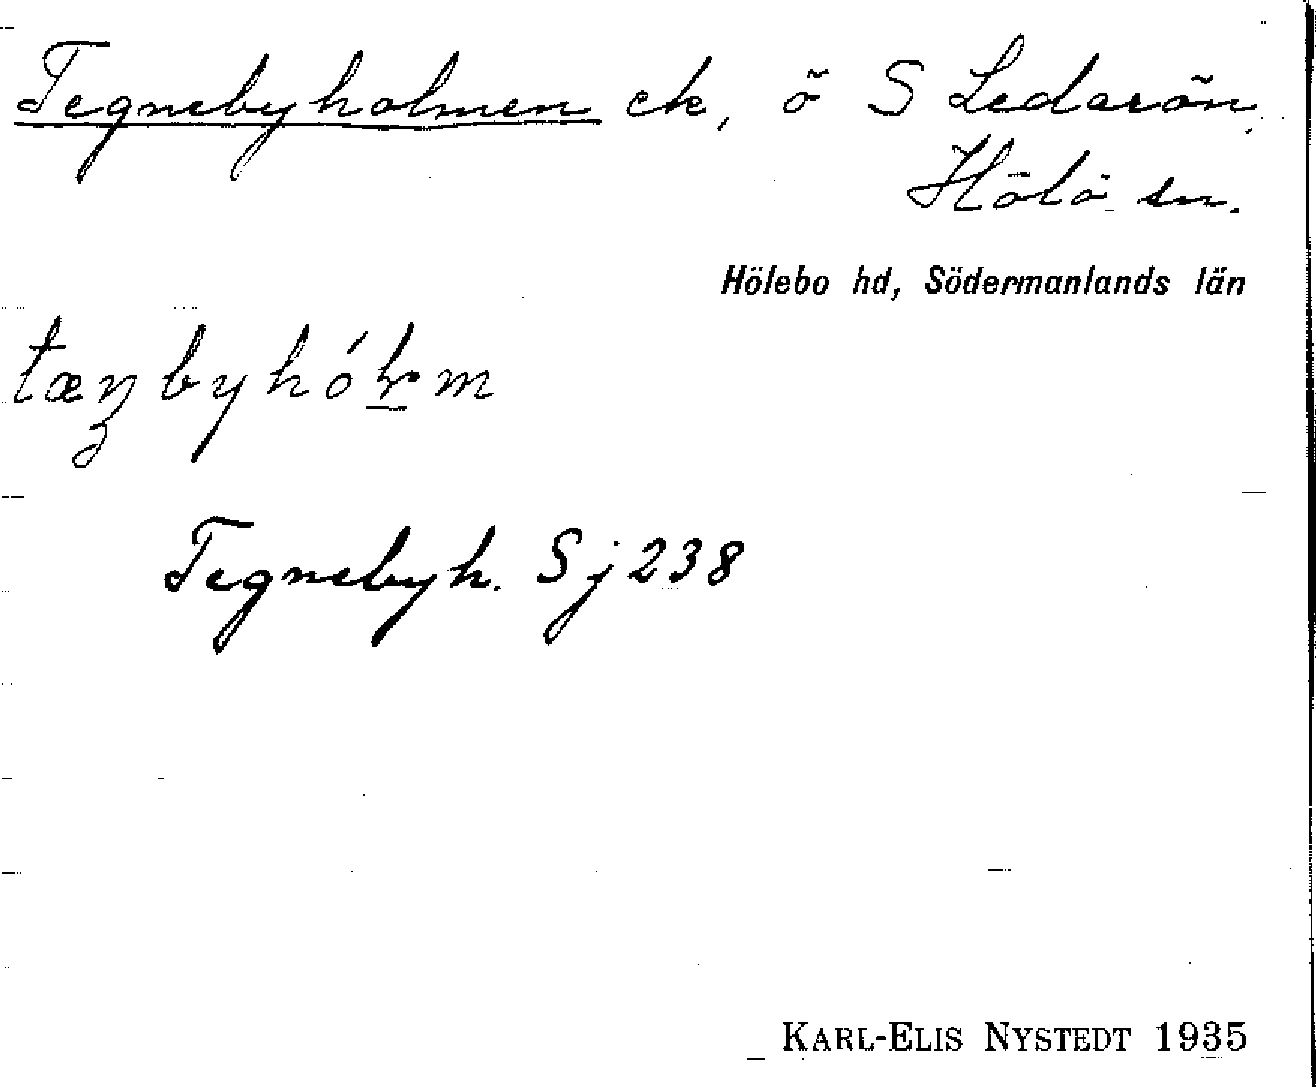 Tegnebyholmen ek, ö S Ledarön,
Hölö sn.
Hölebo hd, Södermanlands län
Tegnebyh. Sj 238
KARL-ELIS NYSTEDT 1935